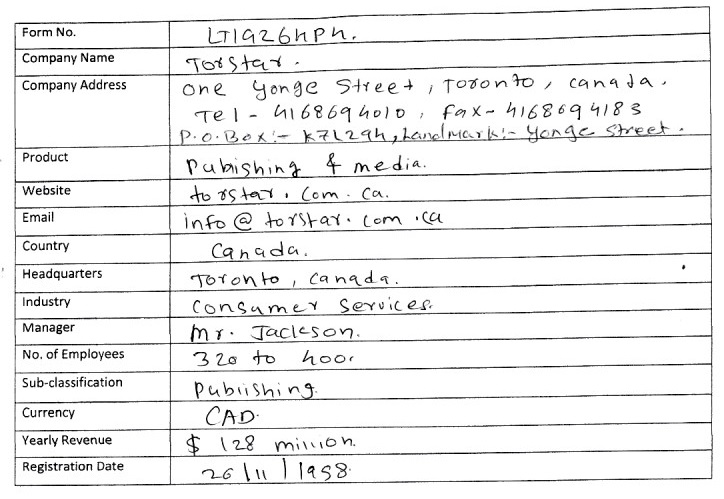 Form No. LT19264P4.
Company Name Torstar.
Company Address One Yonge Street, Toronto, Canada.
Tel - 4168694010, Fax - 4168694183
P.O.Box:- K7L294, Landmark:- Yonge Street.
Product Pubishing & media.
Website torstar.com.ca.
Email info@torstar.com.ca
Country Canada.
Headquarters Toronto, Canada.
Industry Consumer Services.
Manager Mr. Jackson.
No. of Employees 320 to 400.
Sub-classification Publishing.
Currency CAD.
Yearly Revenue $ 128 million.
Registration Date 26/11/1958.